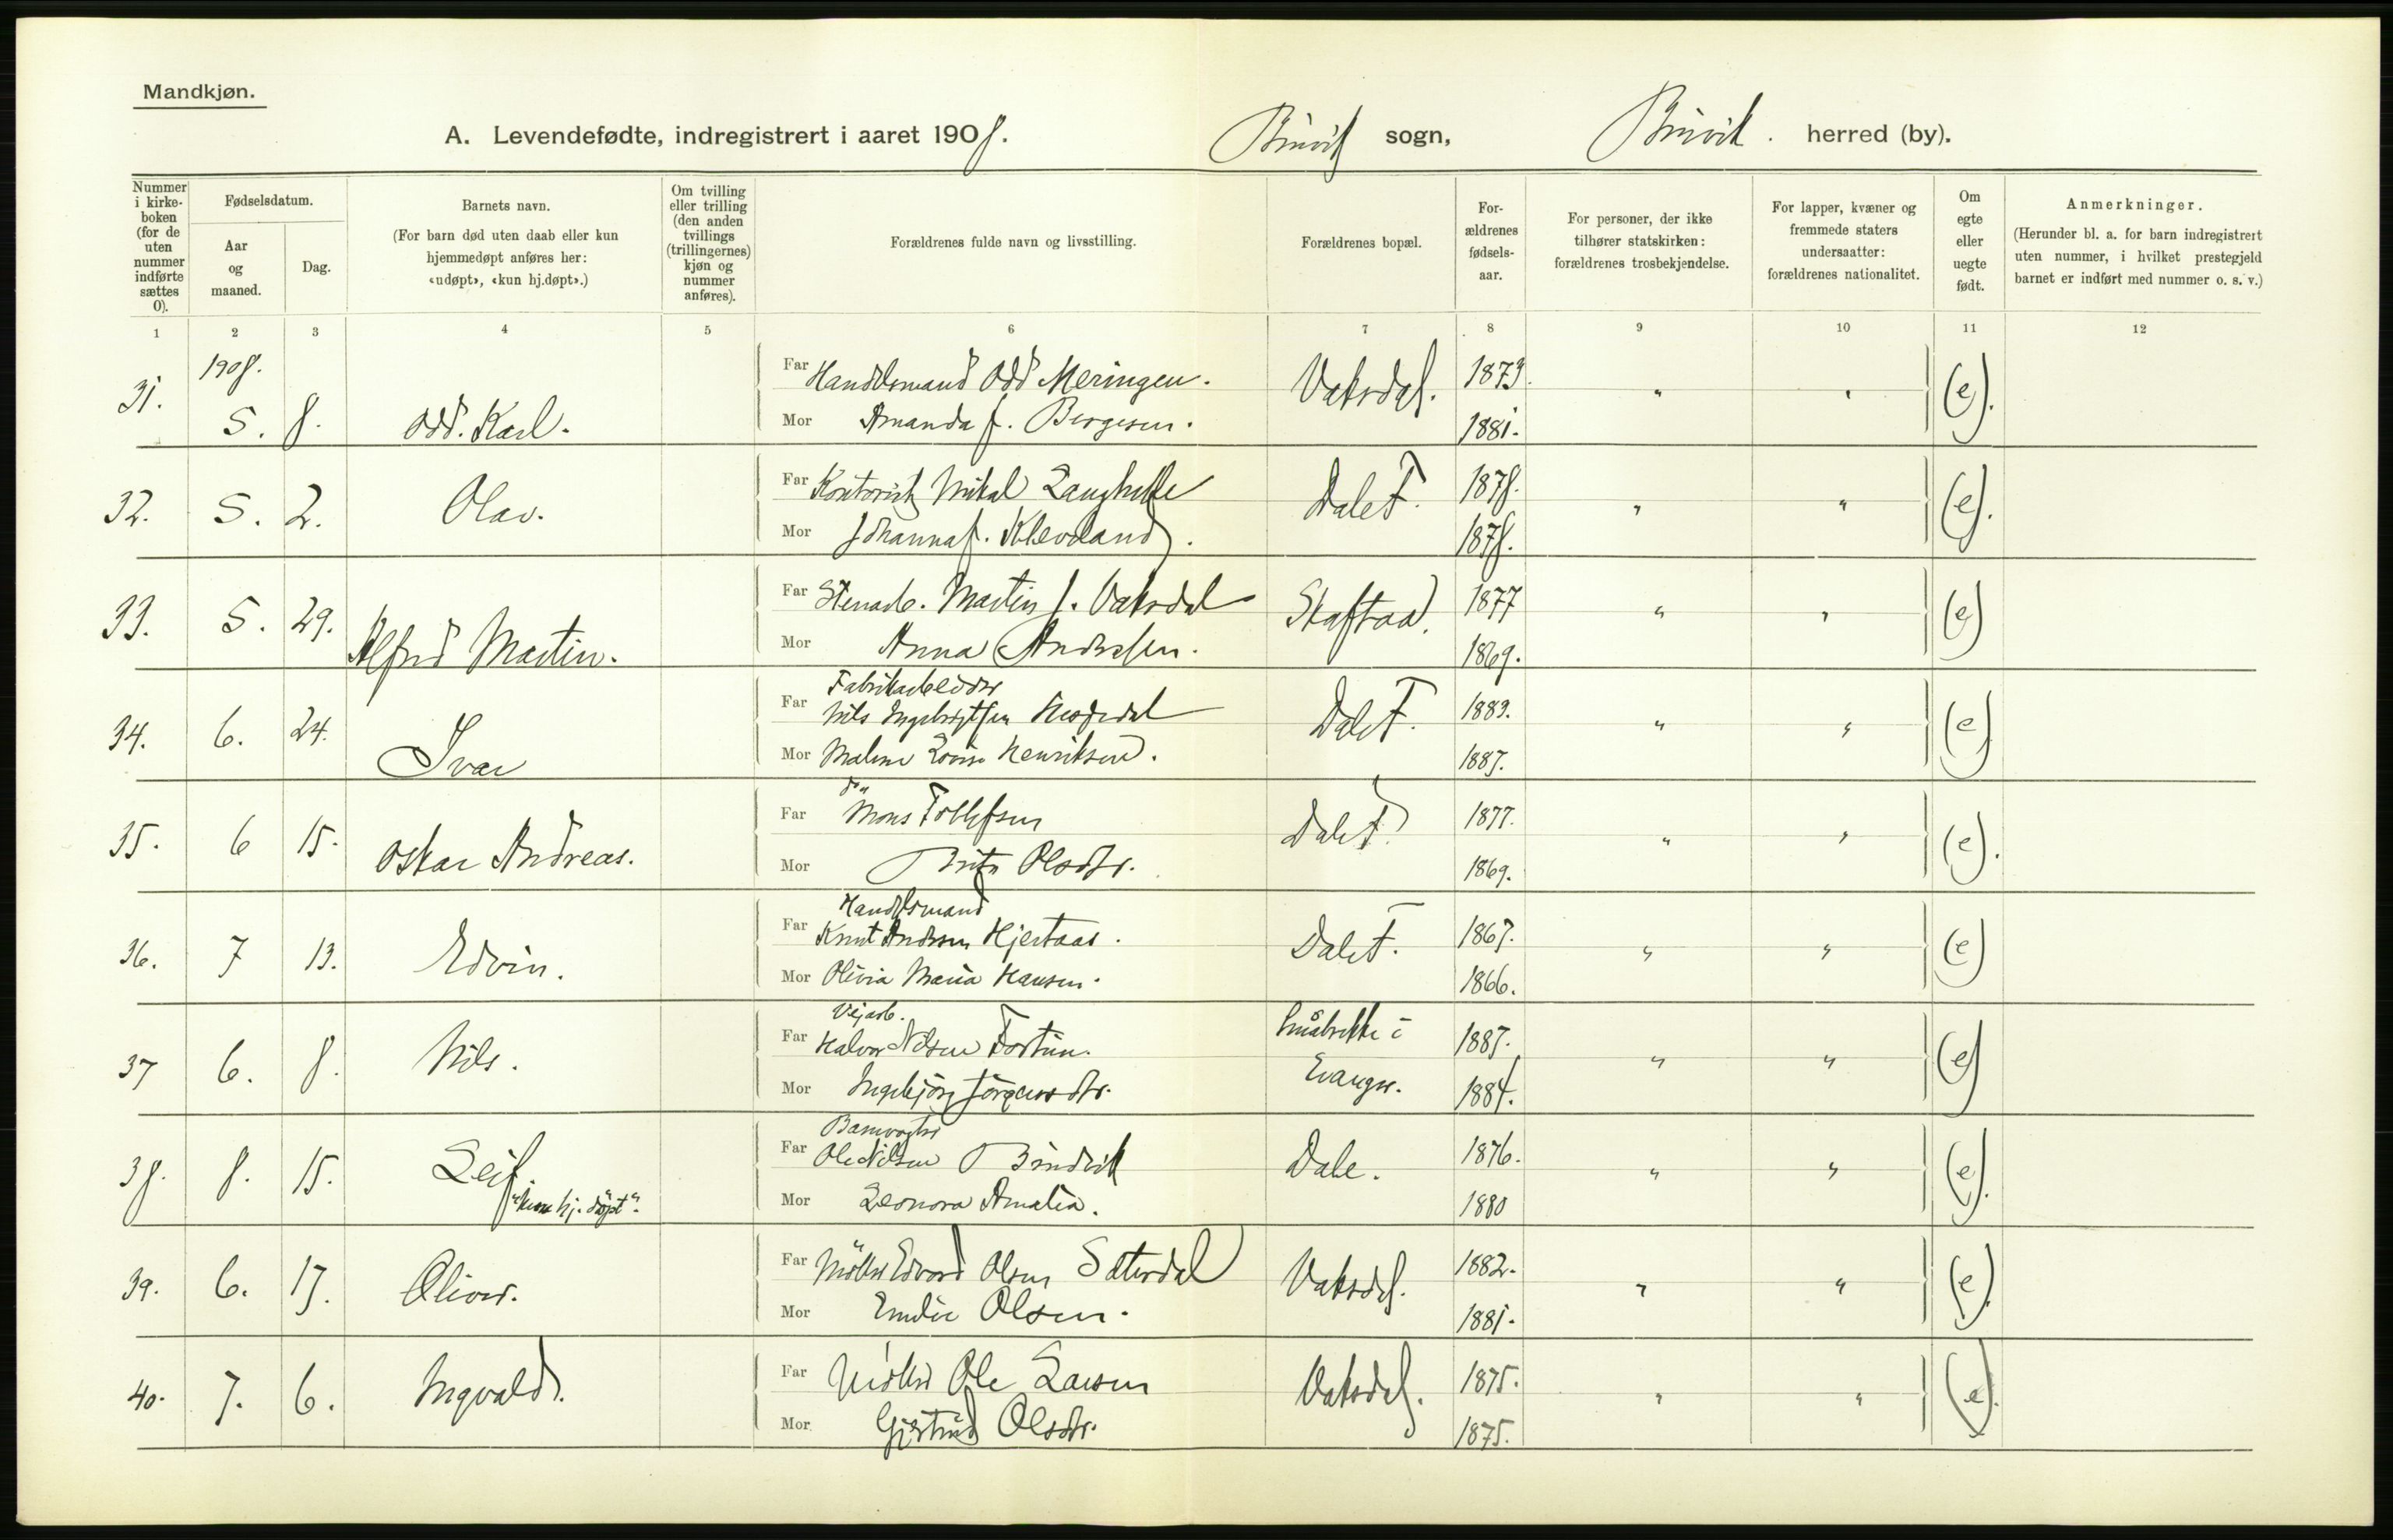 Mandkjøn.
A. Levendefødte, indregistrert i aaret 1908. Bruvik sogn, Bruvik. herred (by).
Nummer i kirkeboken (for de uten nummer indførte sættes 0).
Fødselsdatum.
Aar og maaned.
Dag.
Barnets navn.
(For barn død uten daab eller kun hjemmedøpt anføres her: «udøpt», «kun hj.døpt».)
Om tvilling eller trilling (den anden tvillings (trillingernes) kjøn og nummer anføres).
Forældrenes fulde navn og livsstilling.
Forældrenes bopæl.
For-ældrenes fødsels-aar.
For personer, der ikke tilhører statskirken: forældrenes trosbekjendelse.
For lapper, kvæner og fremmede staters undersaatter: forældrenes nationalitet.
Om egte eller uegte født.
Anmerkninger.
(Herunder bl. a. for barn indregistrert uten nummer, i hvilket prestegjeld barnet er indført med nummer o. s. v.)
1 2 3 4 5 6 7 8 9 10 11 12
31. 1908. 5. 8. Odd. Karl. Far Handelsmand Odd Meringen. Vaksdal. 1873. " " (e).
Mor Amanda f. Bergesen. 1881.
32. 5. 2. Olav. Far Kontorist Mikal Langhelle Dale F. 1878. " " (e).
Mor Johanna f. Kleveland. 1878.
33. 5. 29. Alfred Martin. Far Stenarb. Martin J. Vaksdal Skaftaa. 1877 " " (e)
Mor Anna Andersen. 1869.
34. 6. 24. Ivar Far Fabrikarbeider
Nils Ingebrigtsen Dale F. 1883. " " (e)
Mor Malene Lovise Henriksen. 1887.
35. 6 15. Oskar Andreas. Far do
Mons Tollefsen Dale F. 1877. " " (e).
Mor Brita Olsdtr. 1869.
36. 7 13. Edvin. Far Handelsmand
Knut Andersen Hjertaas. Dale F. 1867. " " (e)
Mor Olivia Maria Hansen. 1866.
37 6. 8. Nils. Far Vejarb.
Halvor Nilsen Fortun. Småbrekke i 1887. " " (e)
Mor Ingebjørg Jørgensdtr. Evanger. 1884.
38. 8. 15. Leif. Far Banevogter
Ole Nilsen Dale. 1876. " " (e).
"kun hj. døpt". Mor Leonora Amalia. 1880
39. 6. 17. Oliver. Far Møller Edvard Olsen Vaksdal. 1882. " " (e).
Mor Emilie Olsen. 1881.
40. 7. 6. Ingvald. Far Møller Ole Larsen Vaksdal. 1875. " " (e).
Mor Gjertrud Olsdtr. 1875.